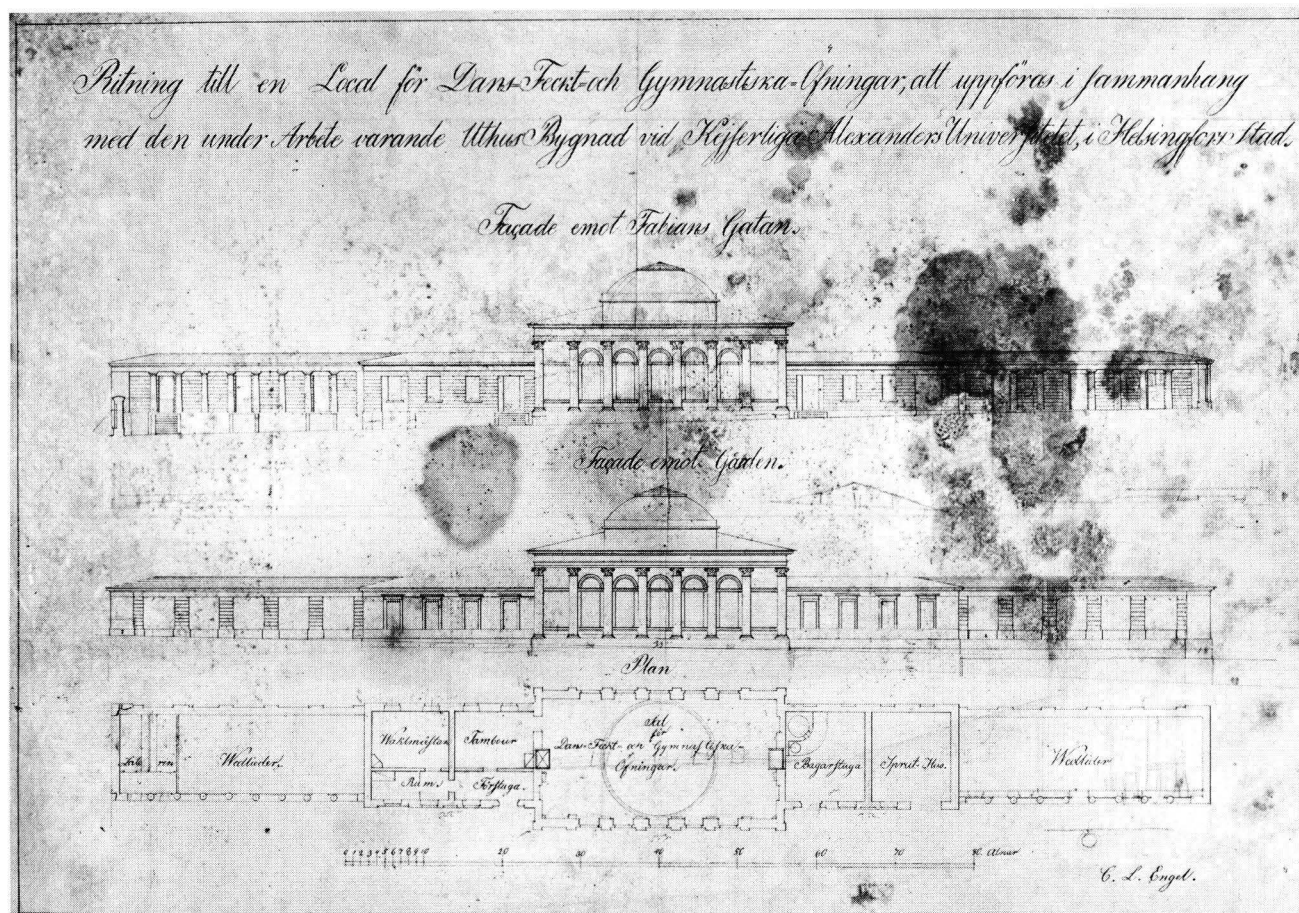 Ritning till en Local för Dans-Feckt-och Gymnastiska-Öfningar, att uppföras i sammanhang
med den under Arbete varande Uthus Bygnad vid Kejserliga Alexanders Universitetet, i Helsingfors Stad.
Façade emot Fabians Gatan.
Façade emot Gården.
Plan
Wedluder.
Waktmästar
Rum.
Tambour
Förstuga.
Sal
för
Dans-Feckt-och Gymnastiska-
Öfningar.
Bagarstuga
Sprut-Hus.
Wedluder
0 1 2 3 4 5 6 7 8 9 10 20 30 40 50 60 70 80 Alnar
C. L. Engel.